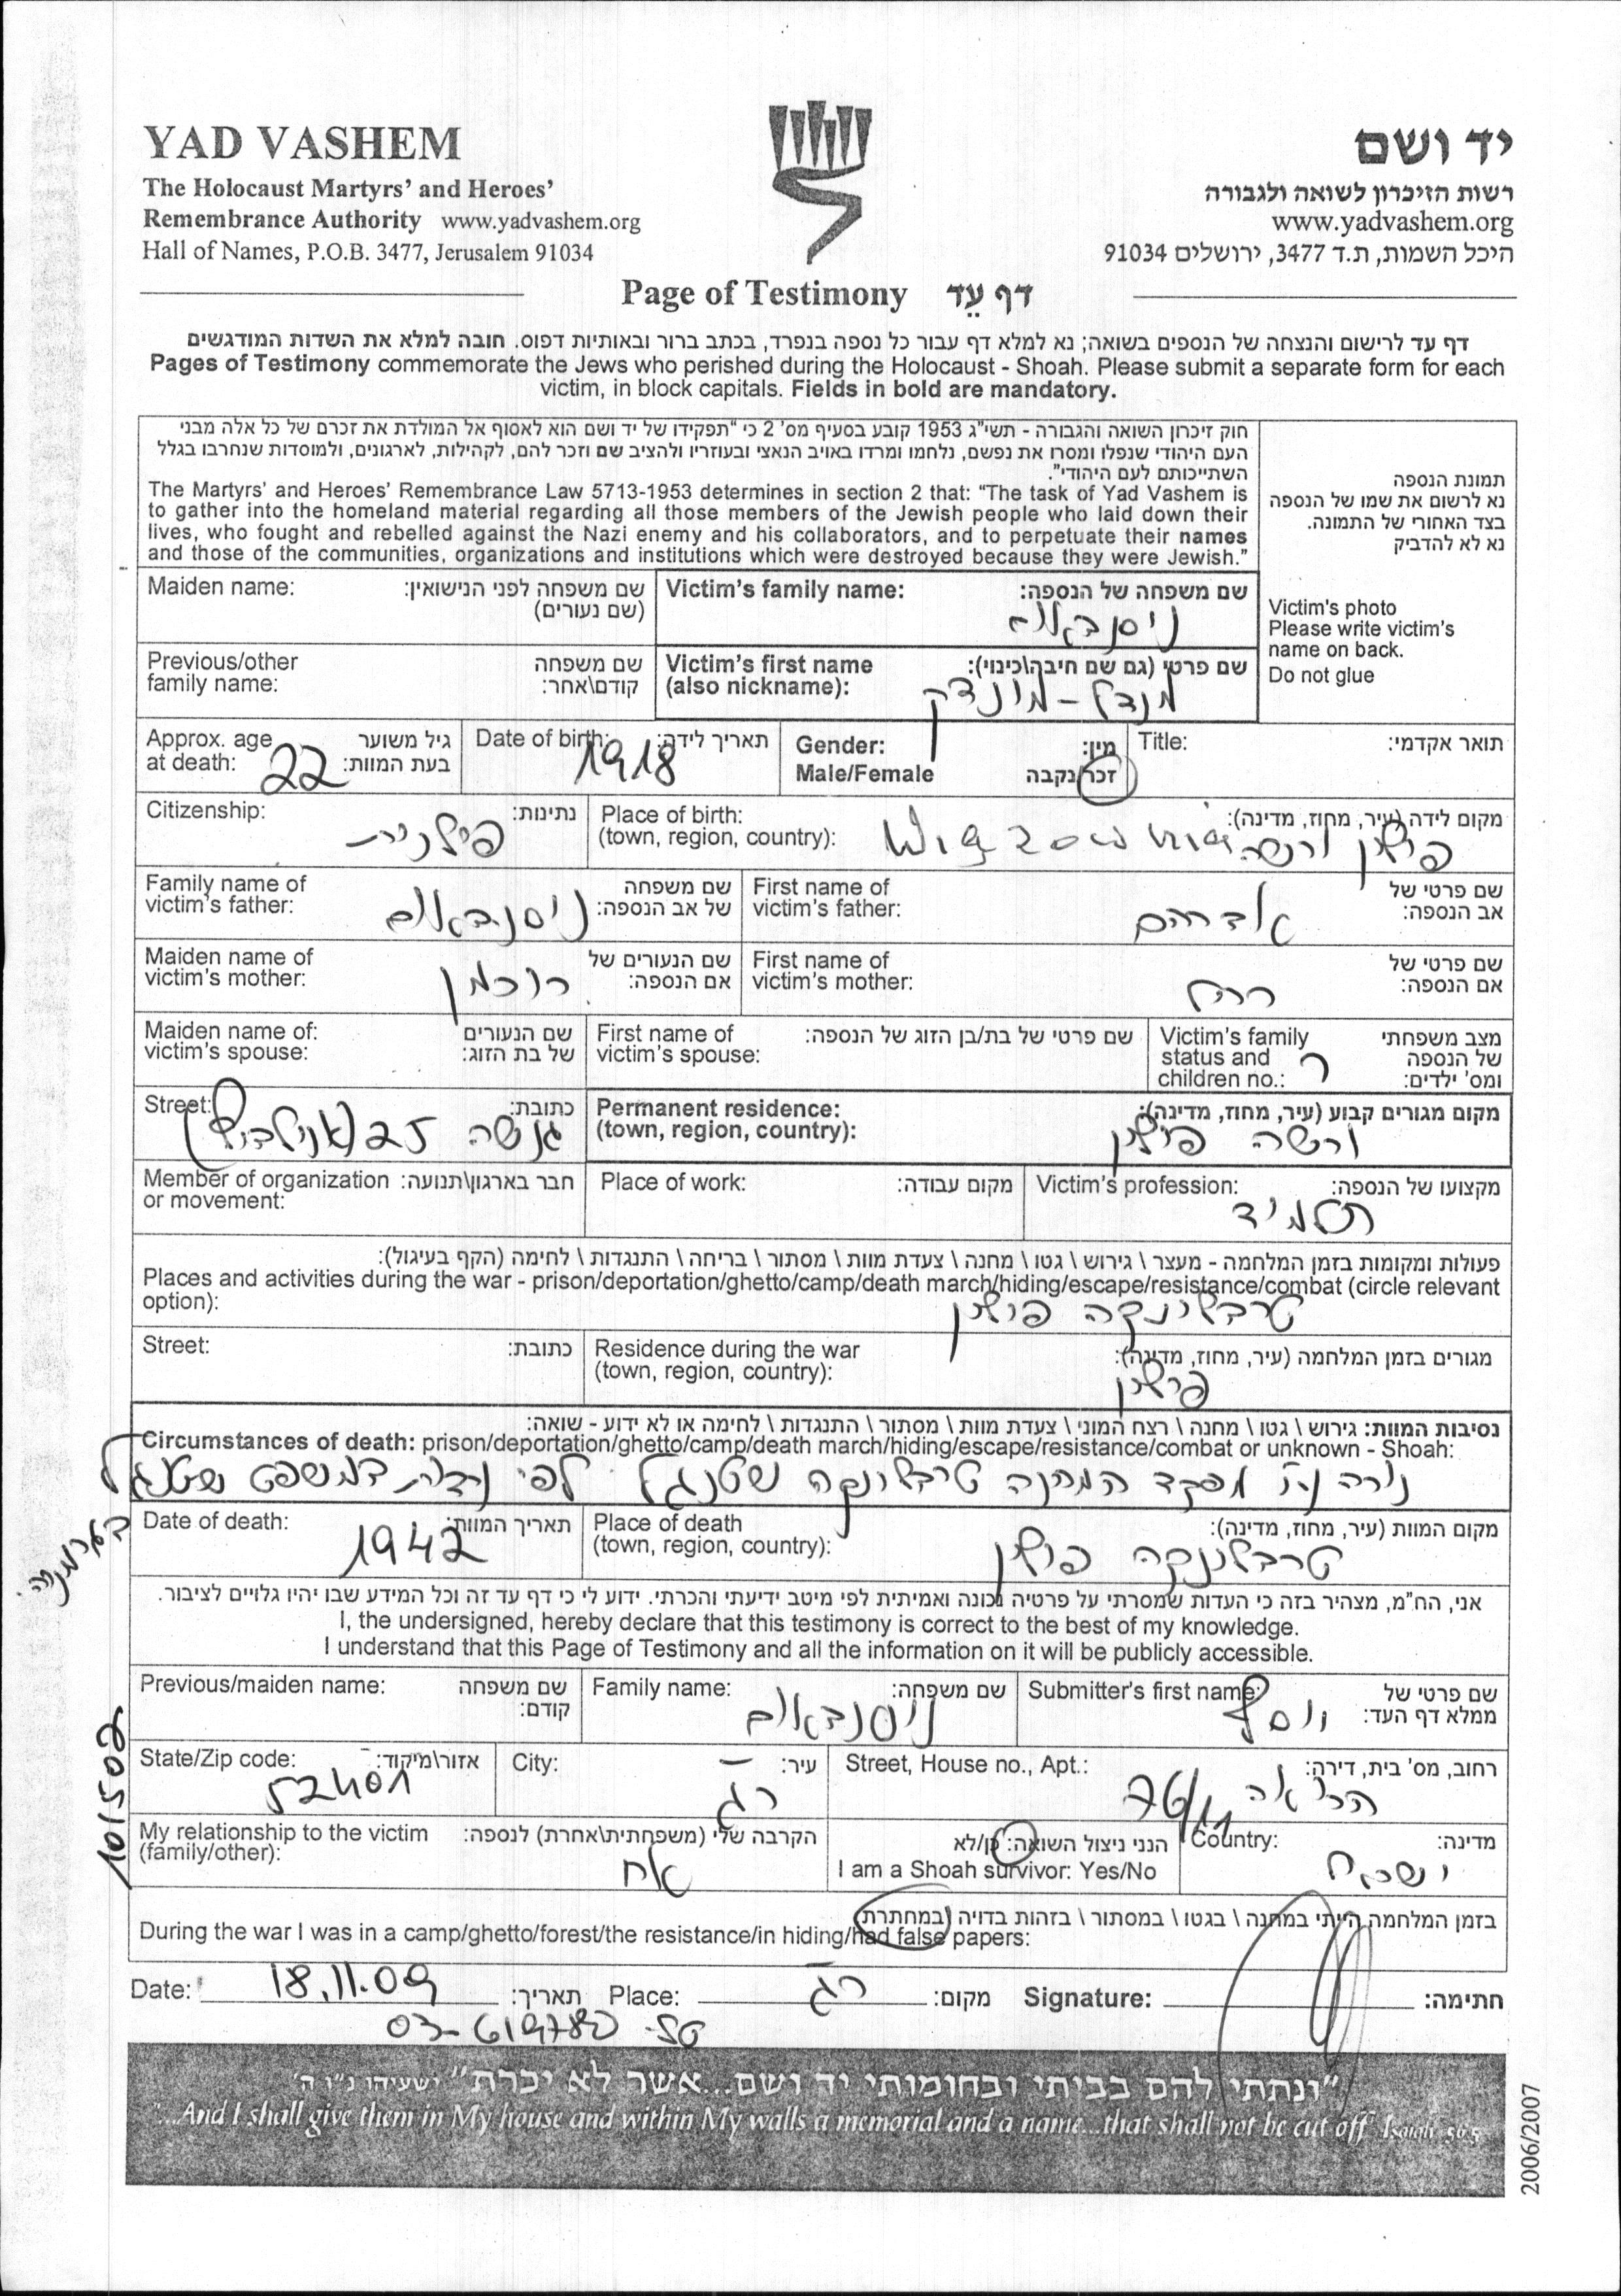 YAD VASHEM
The Holocaust Martyrs' and Heroes'
Remembrance Authority www.yadvashem.org
Hall of Names, P.O.B. 3477, Jerusalem 91034
יד ושם
רשות הזיכרון לשואה ולגבורה
www.yadvashem.org
היכל השמות, ת.ד 3477, ירושלים 91034
Page of Testimony דף עֵד
דף עד לרישום והנצחה של הנספים בשואה; נא למלא דף עבור כל נספה בנפרד, בכתב ברור ובאותיות דפוס. חובה למלא את השדות המודגשים
Pages of Testimony commemorate the Jews who perished during the Holocaust - Shoah. Please submit a separate form for each
victim, in block capitals. Fields in bold are mandatory.
חוק זיכרון השואה והגבורה - תשי"ג 1953 קובע בסעיף מס' 2 כי "תפקידו של יד ושם הוא לאסוף אל המולדת את זכרם של כל אלה מבני
העם היהודי שנפלו ומסרו את נפשם, נלחמו ומרדו באויב הנאצי ובעוזריו ולהציב שם וזכר להם, לקהילות, לארגונים, ולמוסדות שנחרבו בגלל
השתייכותם לעם היהודי".
The Martyrs' and Heroes' Remembrance Law 5713-1953 determines in section 2 that: "The task of Yad Vashem is
to gather into the homeland material regarding all those members of the Jewish people who laid down their
lives, who fought and rebelled against the Nazi enemy and his collaborators, and to perpetuate their names
and those of the communities, organizations and institutions which were destroyed because they were Jewish."
תמונת הנספה
נא לרשום את שמו של הנספה
בצד האחורי של התמונה.
נא לא להדביק
Victim's photo
Please write victim's
name on back.
Do not glue
Maiden name: שם משפחה לפני הנישואין:
(שם נעורים)
Victim's family name: שם משפחה של הנספה:
ניסנבאום
Previous/other שם משפחה
family name: קודם\אחר:
Victim's first name שם פרטי (גם שם חיבה\כינוי):
(also nickname): מנדל-מונדק
Approx. age גיל משוער
at death: 22 בעת המוות:
Date of birth: תאריך לידה:
1918
Gender: מין:
Male/Female זכר/נקבה
Title: תואר אקדמי:
Citizenship: נתינות:
פולנית
Place of birth: מקום לידה (עיר, מחוז, מדינה):
(town, region, country): פולין ורשה
Family name of שם משפחה
victim's father: של אב הנספה: ניסנבאום
First name of שם פרטי של
victim's father: אב הנספה: אברהם
Maiden name of שם הנעורים של
victim's mother: אם הנספה: רוכמן
First name of שם פרטי של
victim's mother: אם הנספה: רחל
Maiden name of: שם הנעורים
victim's spouse: של בת הזוג:
First name of שם פרטי של בת/בן הזוג של הנספה:
victim's spouse:
Victim's family מצב משפחתי
status and של הנספה
children no.: ומס' ילדים: ר
Street: כתובת:
גנשה 25
Permanent residence: מקום מגורים קבוע (עיר, מחוז, מדינה):
(town, region, country): ורשה פולין
Member of organization חבר בארגון\תנועה:
or movement:
Place of work: מקום עבודה:
Victim's profession: מקצועו של הנספה:
תלמיד
פעולות ומקומות בזמן המלחמה - מעצר \ גירוש \ גטו \ מחנה \ צעדת מוות \ מסתור \ בריחה \ התנגדות \ לחימה (הקף בעיגול):
Places and activities during the war - prison/deportation/ghetto/camp/death march/hiding/escape/resistance/combat (circle relevant
option): טרבלינקה פולין
Street: כתובת:
Residence during the war מגורים בזמן המלחמה (עיר, מחוז, מדינה):
(town, region, country): פולין
נסיבות המוות: גירוש \ גטו \ מחנה \ רצח המוני \ צעדת מוות \ מסתור \ התנגדות \ לחימה או לא ידוע - שואה:
Circumstances of death: prison/deportation/ghetto/camp/death march/hiding/escape/resistance/combat or unknown - Shoah:
נורה ע"י מפקד המחנה טרבלינקה שטנגל לפי עדות במשפט שטנגל
בגרמניה
Date of death: תאריך המוות:
1942
Place of death מקום המוות (עיר, מחוז, מדינה):
(town, region, country): טרבלינקה פולין
אני, הח"מ, מצהיר בזה כי העדות שמסרתי על פרטיה נכונה ואמיתית לפי מיטב ידיעתי והכרתי. ידוע לי כי דף עד זה וכל המידע שבו יהיו גלויים לציבור.
I, the undersigned, hereby declare that this testimony is correct to the best of my knowledge.
I understand that this Page of Testimony and all the information on it will be publicly accessible.
Previous/maiden name: שם משפחה
קודם:
Family name: שם משפחה:
ניסנבאום
Submitter's first name: שם פרטי של
ממלא דף העד: יוסף
State/Zip code: אזור\מיקוד:
52401
City: עיר:
רג
Street, House no., Apt.: רחוב, מס' בית, דירה:
הרא"ה 76/11
My relationship to the victim הקרבה שלי (משפחתית\אחרת) לנספה:
(family/other): אח
הנני ניצול השואה: כן/לא
I am a Shoah survivor: Yes/No
Country: מדינה:
ישראל
בזמן המלחמה הייתי במחנה \ בגטו \ במסתור \ בזהות בדויה \ במחתרת
During the war I was in a camp/ghetto/forest/the resistance/in hiding/had false papers:
Date: 18.11.09 תאריך: Place: רג מקום: Signature: חתימה:
"ונתתי להם בביתי ובחומותי יד ושם...אשר לא יכרת" ישעיהו נ"ו ה'
"...And I shall give them in My house and within My walls a memorial and a name...that shall not be cut off" Isaiah 56:5
101502
2006/2007